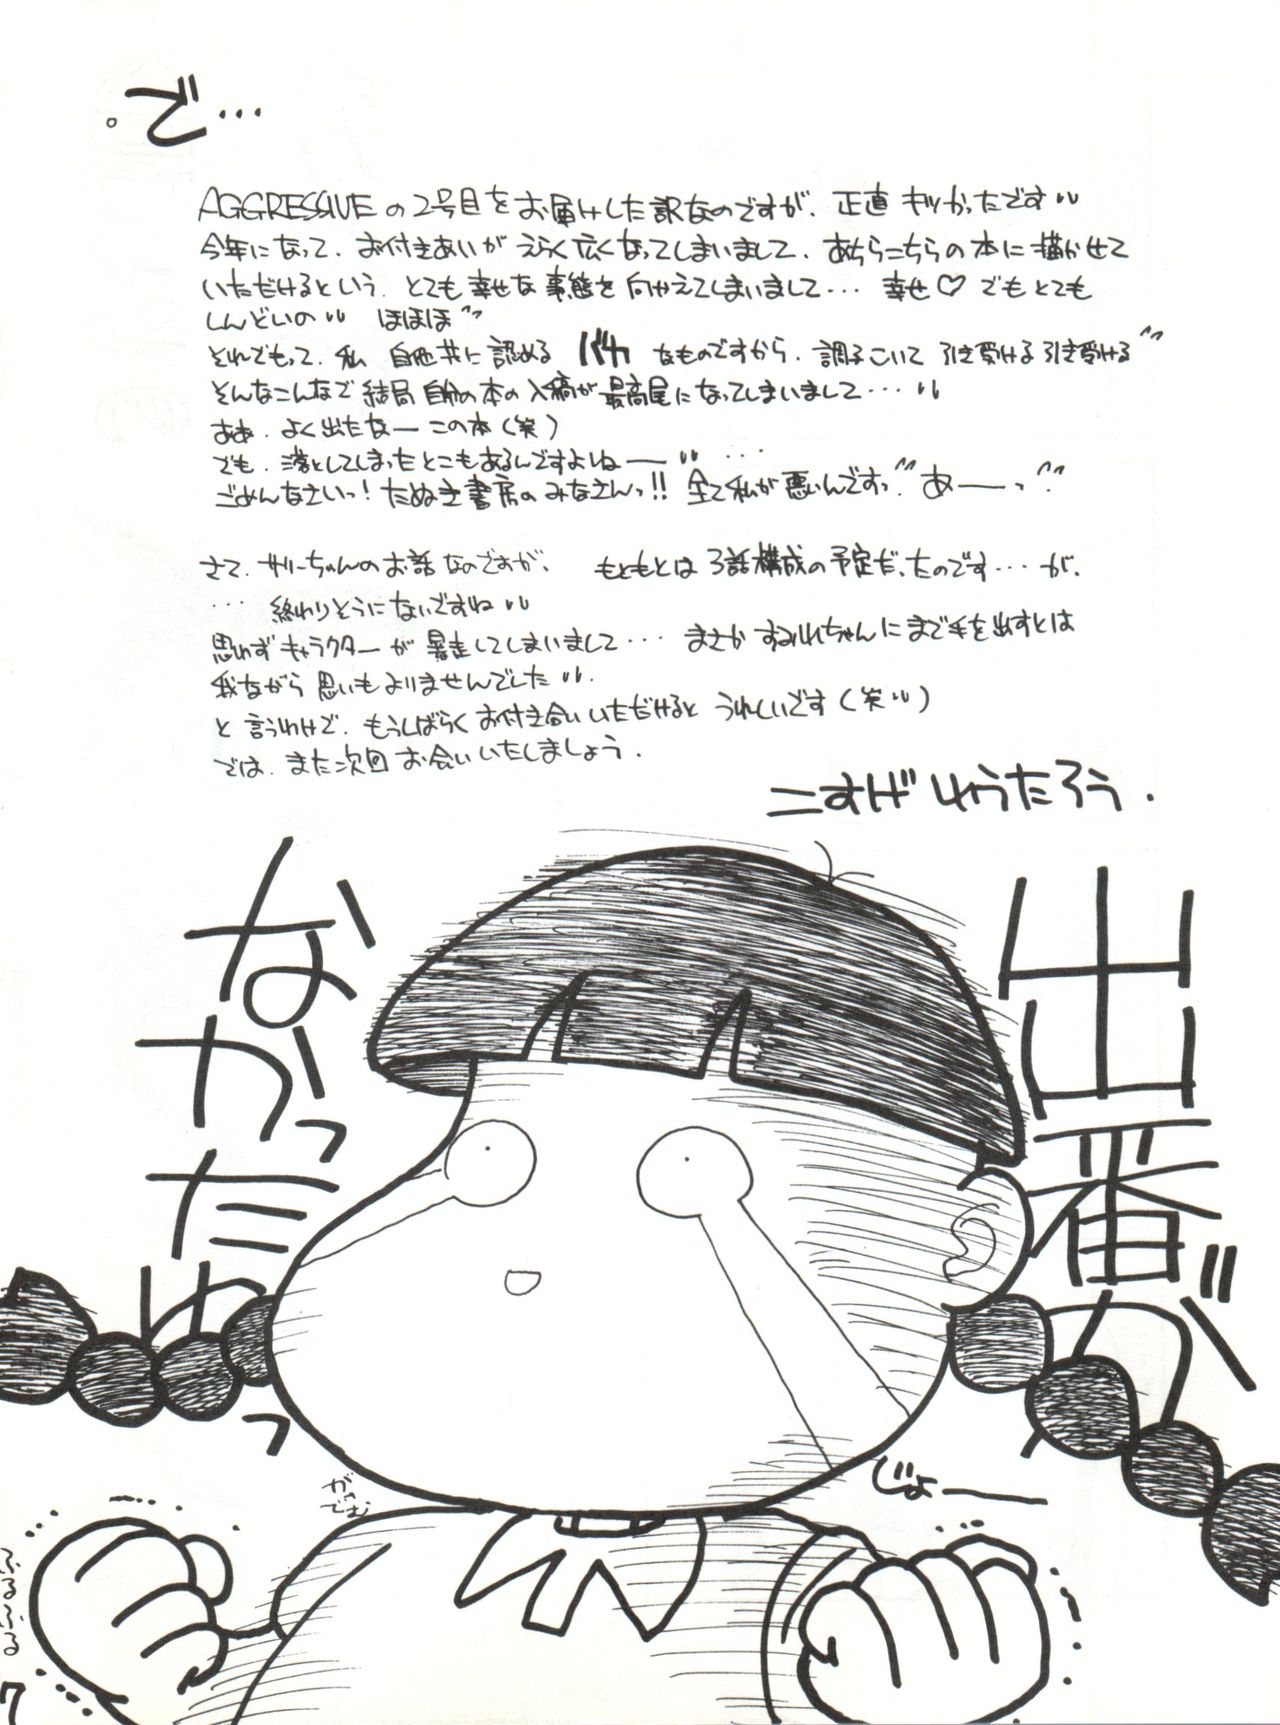 。で…
AGGRESSIVEの2号目をお届けした訳なのですが、正直キツかったです〃
今年になって、お付きあいがえらく広くなってしまいまして、あちらこちらの本に描かせて
いただけるという、とても幸せな事態を向かえてしまいまして… 幸せ♡でもとても
しんどいの〃 ほほほ〃
それでもって、私 自他共に認める バカ なものですから、調子こいて引き受ける引き受ける〃
そんなこんなで結局自分の本の入稿が最高尾になってしまいまして…〃
ああ、よく出たなーこの本(笑)
でも、落としてしまったとこもあるんですよねー〃…
ごめんなさいっ!たぬき書房のみなさんっ!!全て私が悪いんですっ〃あーっ〃
さて、サリーちゃんのお話なのですが、もともとは3話構成の予定だったのです…が、
… 終わりそうにないですね〃
思わずキャラクターが暴走してしまいまして… まさかすみれちゃんにまで手を出すとは
我ながら思いもよりませんでした〃、
と言うわけで、もうしばらくお付き合いいただけるとうれしいです(笑〃)
では、また次回お会いいたしましょう、
こすげしゅうたろう.
出番が
なかったわっ
じょー
がでむ
ぶるぶる
7